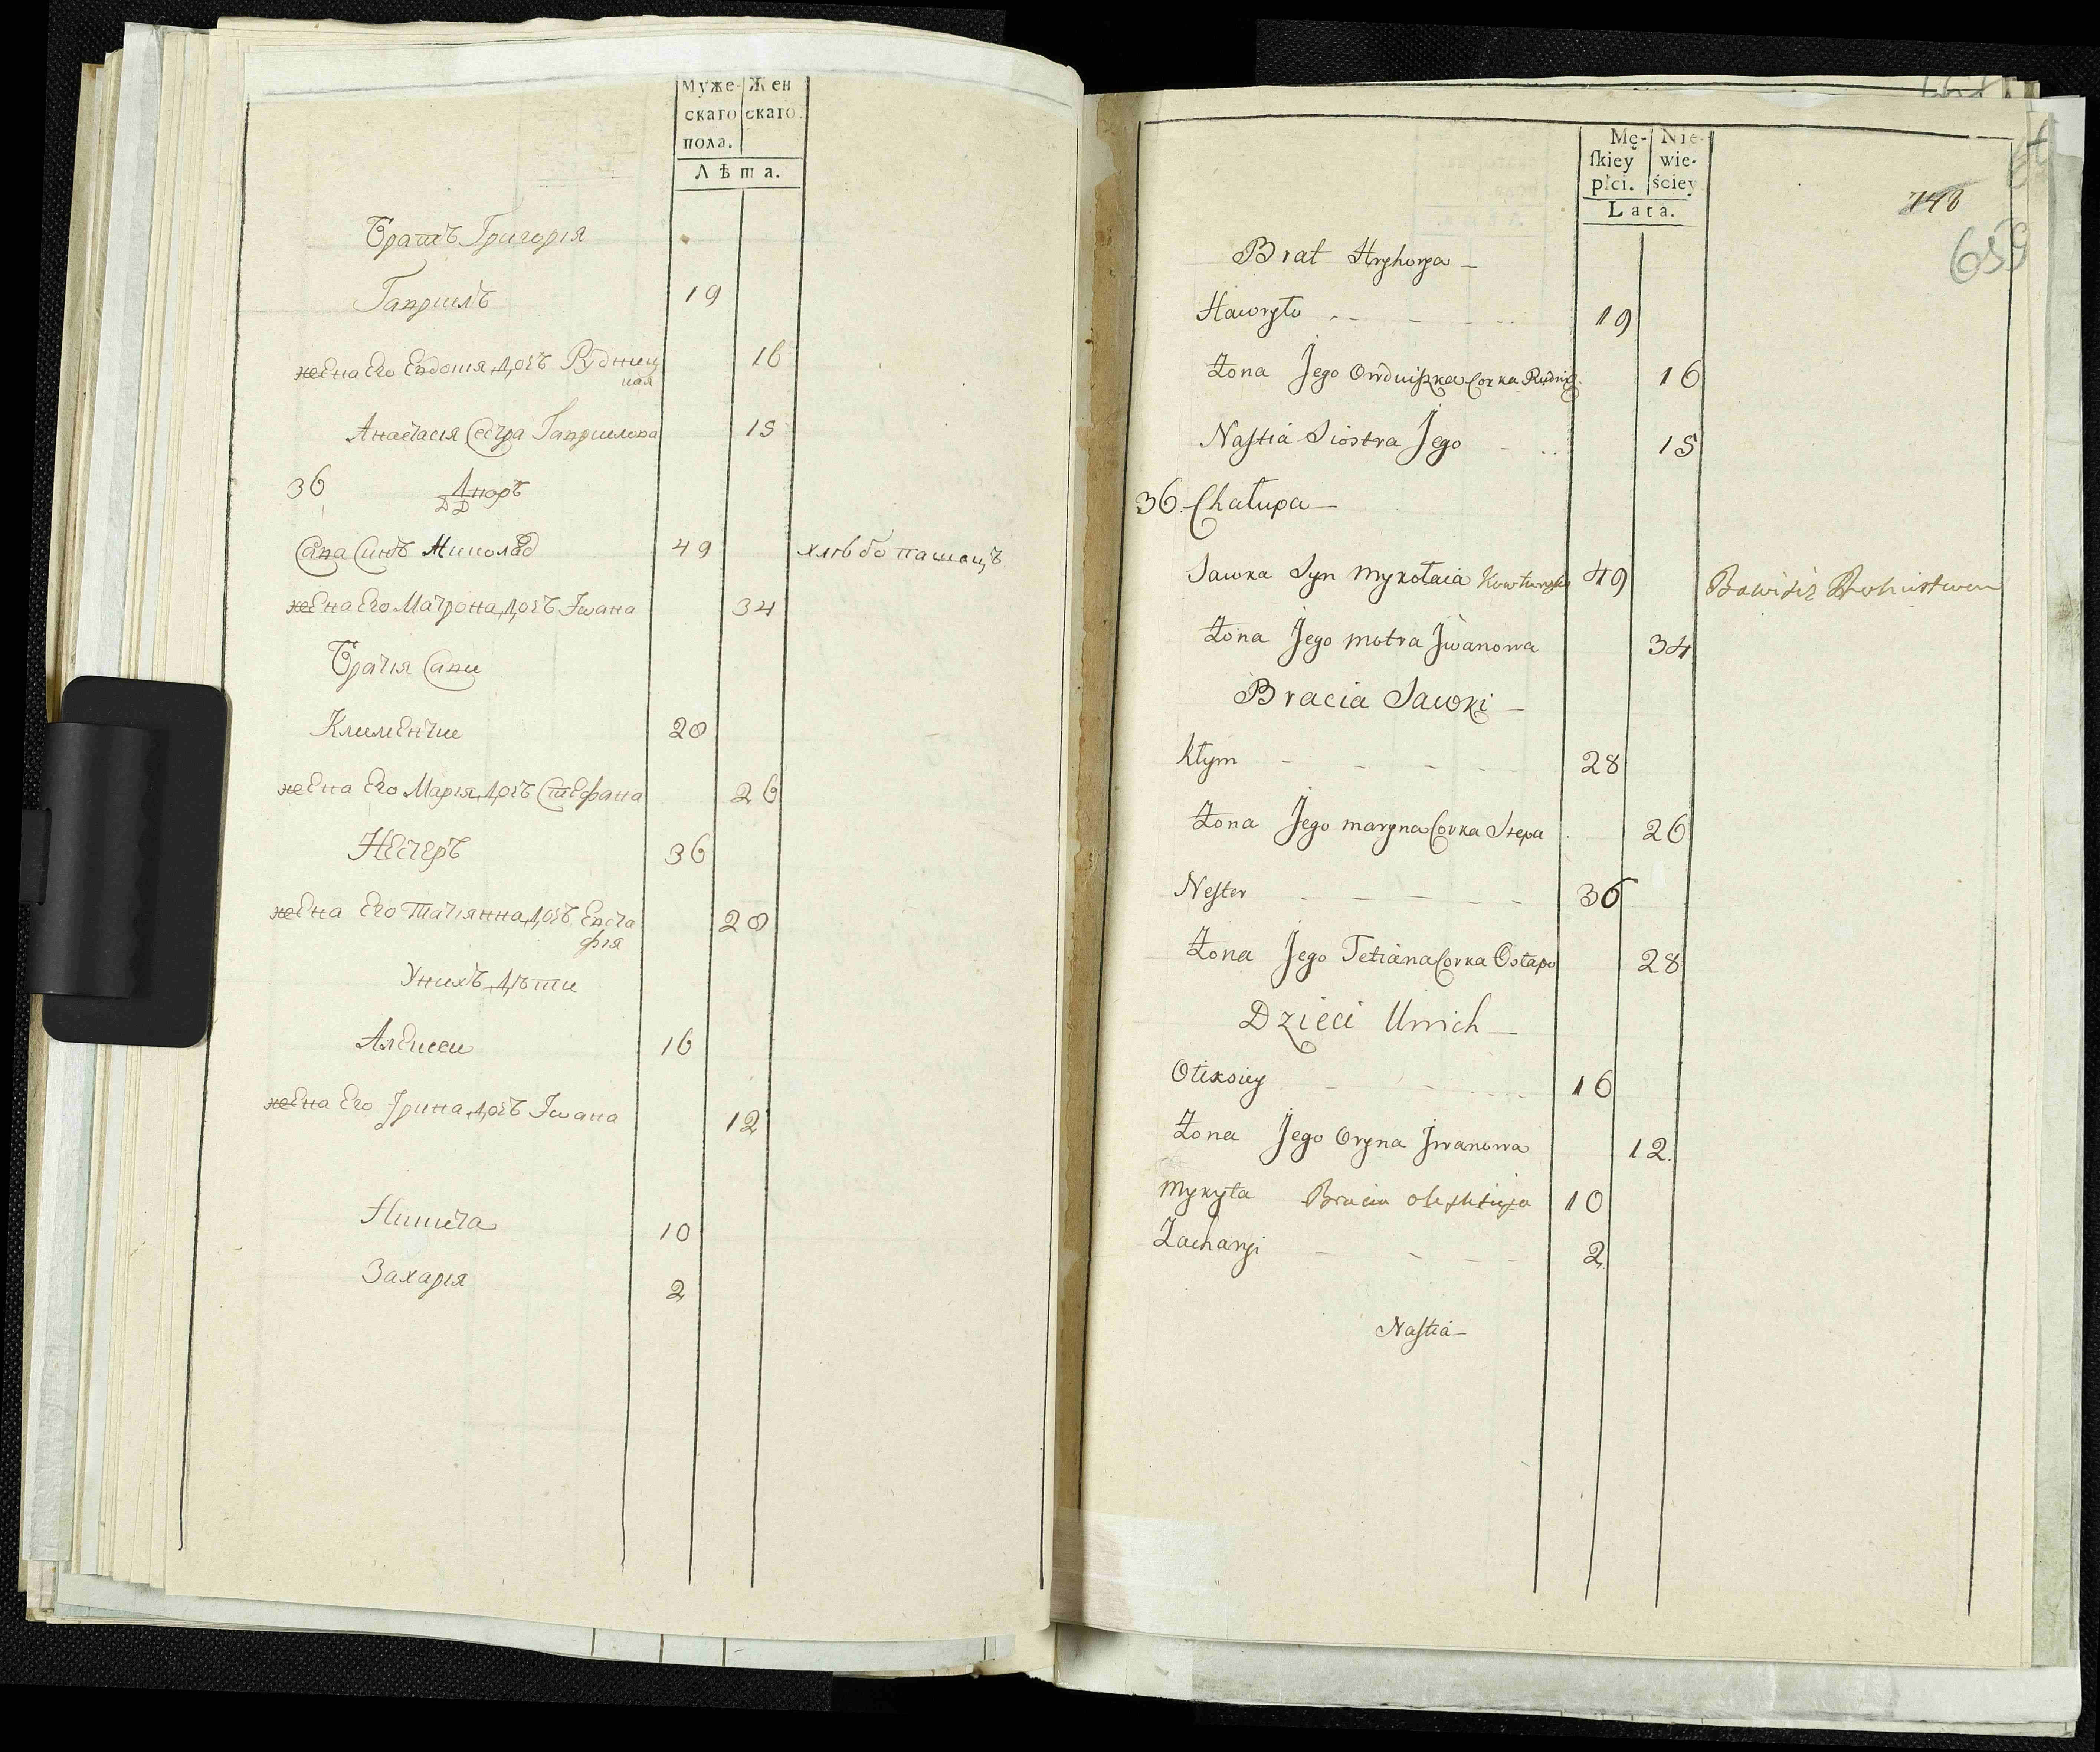 Муже- Жен
скаго скаго
пола.
Лѣта.
Братъ Григорія
Гавриилъ 19
жена Его Евдокія дочъ Рудницкая 16
Анастасія Сестра Гавриилова 15
36 Дворъ
Сава Синъ Николаѧ 49 хлѣбопашецъ
жена Его Матрона дочъ Іѡана 34
Братія Сави
Климентии 28
жена Его Марія дочъ Стефана 26
Нестеръ 36
жена Его Татіянна дочъ Евста
фія 28
У нихъ дѣти
Алексеи 16
жена Его Ірина дочъ Іѡана 12
Никита 10
Захарія 2
Mę- Nie-
skiey wie-
płci. ściey
Lata.
748
659
Brat Hryhorya
Hawryło 19
Żona Jego Corka 16
Nastia Siostra Jego 15
36. Chałupa
Sawka Syn Mykołaia 49 Bawiſię
Żona Jego Motra Jwanowa 34
Bracia Sawki
Kłym 28
Żona Jego Maryna Corka Stepa 26
Nester 36
Żona Jego Tetiana Corka Ostapa 28
Dzieci Unich
Oleksiey 16
Żona Jego Oryna Jwanowa 12.
Mykyta Bracia 10
Zacharyi 2
Nastia